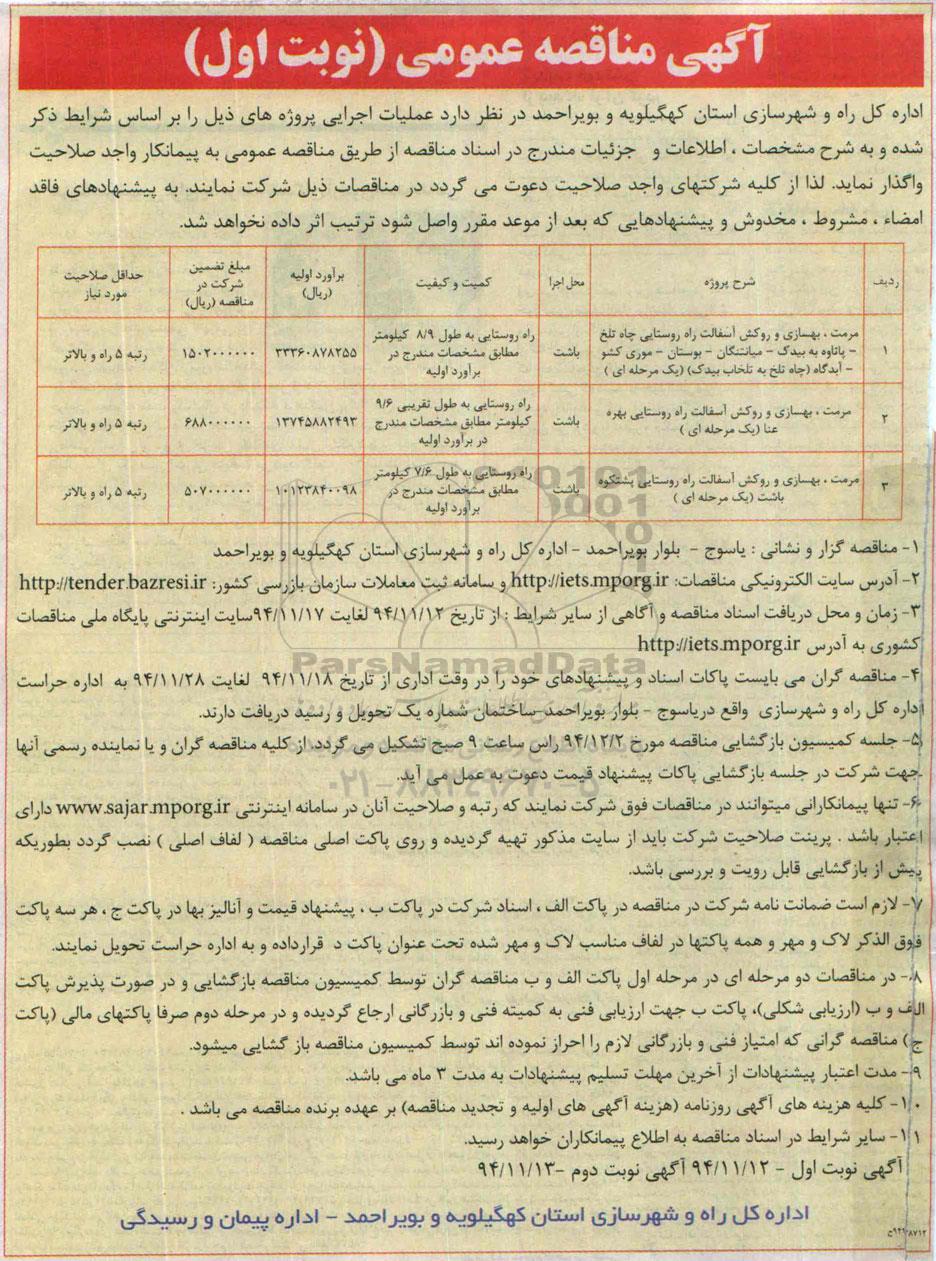 آگهی مناقصه عمومی (نوبت اول)
اداره کل راه و شهرسازی استان کهگیلویه و بویراحمد در نظر دارد عملیات اجرایی پروژه های ذیل را بر اساس شرایط ذکر
شده و به شرح مشخصات ، اطلاعات و جزئیات مندرج در اسناد مناقصه از طریق مناقصه عمومی به پیمانکار واجد صلاحیت
واگذار نماید. لذا از کلیه شرکتهای واجد صلاحیت دعوت می گردد در مناقصات ذیل شرکت نمایند. به پیشنهادهای فاقد
امضاء ، مشروط ، مخدوش و پیشنهادهایی که بعد از موعد مقرر واصل شود ترتیب اثر داده نخواهد شد.
ردیف
شرح پروژه
محل اجرا
کمیت و کیفیت
برآورد اولیه
(ریال)
مبلغ تضمین
شرکت در
مناقصه (ریال)
حداقل صلاحیت
مورد نیاز
۱
مرمت ، بهسازی و روکش آسفالت راه روستایی چاه تلخ
- پاتاوه به بیدک - میانتنگان - بوستان - موری کشو
- آبدگاه (چاه تلخ به تلخاب بیدک) (یک مرحله ای )
باشت
راه روستایی به طول ۸/۹ کیلومتر
مطابق مشخصات مندرج در
برآورد اولیه
۳۳۳۶۰۸۷۸۲۵۵
۱۵۰۲۰۰۰۰۰۰
رتبه ۵ راه و بالاتر
۲
مرمت ، بهسازی و روکش آسفالت راه روستایی بهره
عنا (یک مرحله ای )
باشت
راه روستایی به طول تقریبی ۹/۶
کیلومتر مطابق مشخصات مندرج
در برآورد اولیه
۱۳۷۴۵۸۸۲۴۹۳
۶۸۸۰۰۰۰۰۰
رتبه ۵ راه و بالاتر
۳
مرمت ، بهسازی و روکش آسفالت راه روستایی پشتکوه
باشت (یک مرحله ای )
باشت
راه روستایی به طول ۷/۶ کیلومتر
مطابق مشخصات مندرج در
برآورد اولیه
۱۰۱۲۳۸۴۰۰۹۸
۵۰۷۰۰۰۰۰۰
رتبه ۵ راه و بالاتر
۱- مناقصه گزار و نشانی : یاسوج - بلوار بویراحمد - اداره کل راه و شهرسازی استان کهگیلویه و بویراحمد
۲- آدرس سایت الکترونیکی مناقصات: http://iets.mporg.ir و سامانه ثبت معاملات سازمان بازرسی کشور: http://tender.bazresi.ir
۳- زمان و محل دریافت اسناد مناقصه و آگاهی از سایر شرایط : از تاریخ ۹۴/۱۱/۱۲ لغایت ۹۴/۱۱/۱۷سایت اینترنتی پایگاه ملی مناقصات
کشوری به آدرس http://iets.mporg.ir
ParsNamadData
۴- مناقصه گران می بایست پاکات اسناد و پیشنهادهای خود را در وقت اداری از تاریخ ۹۴/۱۱/۱۸ لغایت ۹۴/۱۱/۲۸ به اداره حراست
اداره کل راه و شهرسازی واقع دریاسوج - بلوار بویراحمد-ساختمان شماره یک تحویل و رسید دریافت دارند.
۵- جلسه کمیسیون بازگشایی مناقصه مورخ ۹۴/۱۲/۲ راس ساعت ۹ صبح تشکیل می گردد. از کلیه مناقصه گران و یا نماینده رسمی آنها
جهت شرکت در جلسه بازگشایی پاکات پیشنهاد قیمت دعوت به عمل می آید.
۰۲۱-۸۸۳۴۹۶۷۰-۵
۶- تنها پیمانکارانی میتوانند در مناقصات فوق شرکت نمایند که رتبه و صلاحیت آنان در سامانه اینترنتی www.sajar.mporg.ir دارای
اعتبار باشد . پرینت صلاحیت شرکت باید از سایت مذکور تهیه گردیده و روی پاکت اصلی مناقصه ( لفاف اصلی ) نصب گردد بطوریکه
پیش از بازگشایی قابل رویت و بررسی باشد.
۷- لازم است ضمانت نامه شرکت در مناقصه در پاکت الف ، اسناد شرکت در پاکت ب ، پیشنهاد قیمت و آنالیز بها در پاکت ج ، هر سه پاکت
فوق الذکر لاک و مهر و همه پاکتها در لفاف مناسب لاک و مهر شده تحت عنوان پاکت د قرارداده و به اداره حراست تحویل نمایند.
۸- در مناقصات دو مرحله ای در مرحله اول پاکت الف و ب مناقصه گران توسط کمیسیون مناقصه بازگشایی و در صورت پذیرش پاکت
الف و ب (ارزیابی شکلی)، پاکت ب جهت ارزیابی فنی به کمیته فنی و بازرگانی ارجاع گردیده و در مرحله دوم صرفا پاکتهای مالی (پاکت
ج) مناقصه گرانی که امتیاز فنی و بازرگانی لازم را احراز نموده اند توسط کمیسیون مناقصه باز گشایی میشود.
۹- مدت اعتبار پیشنهادات از آخرین مهلت تسلیم پیشنهادات به مدت ۳ ماه می باشد.
۱۰- کلیه هزینه های آگهی روزنامه (هزینه آگهی های اولیه و تجدید مناقصه) بر عهده برنده مناقصه می باشد .
۱۱- سایر شرایط در اسناد مناقصه به اطلاع پیمانکاران خواهد رسید.
آگهی نوبت اول - ۹۴/۱۱/۱۲ آگهی نوبت دوم -۹۴/۱۱/۱۳
اداره کل راه و شهرسازی استان کهگیلویه و بویراحمد - اداره پیمان و رسیدگی